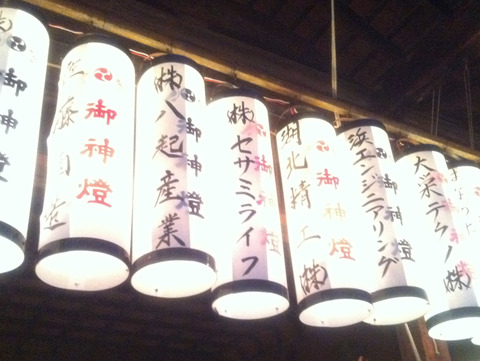 御神燈
御神燈
㈱八起産業
御神燈
㈱セサミライフ
御神燈
湖北精工㈱
御神燈
浜エンジニアリング
御神燈
大栄テクノ㈱